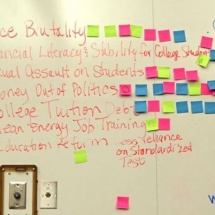 ce Brutality
ancial Literacy & Stability for College Students
ual Assault on Students
oney Out of Politics
ollege Tuition Debt
ean Energy Job Training
ducation Reform
on reliance
on Standardized
Test
W